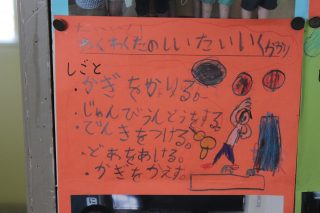 わくわくたのしいたいいくがかり
しごと
・かぎをかりる。
・じゅんびうんどうをする。
・でんきをつける。
・どあをあける。
・かぎをかえす。